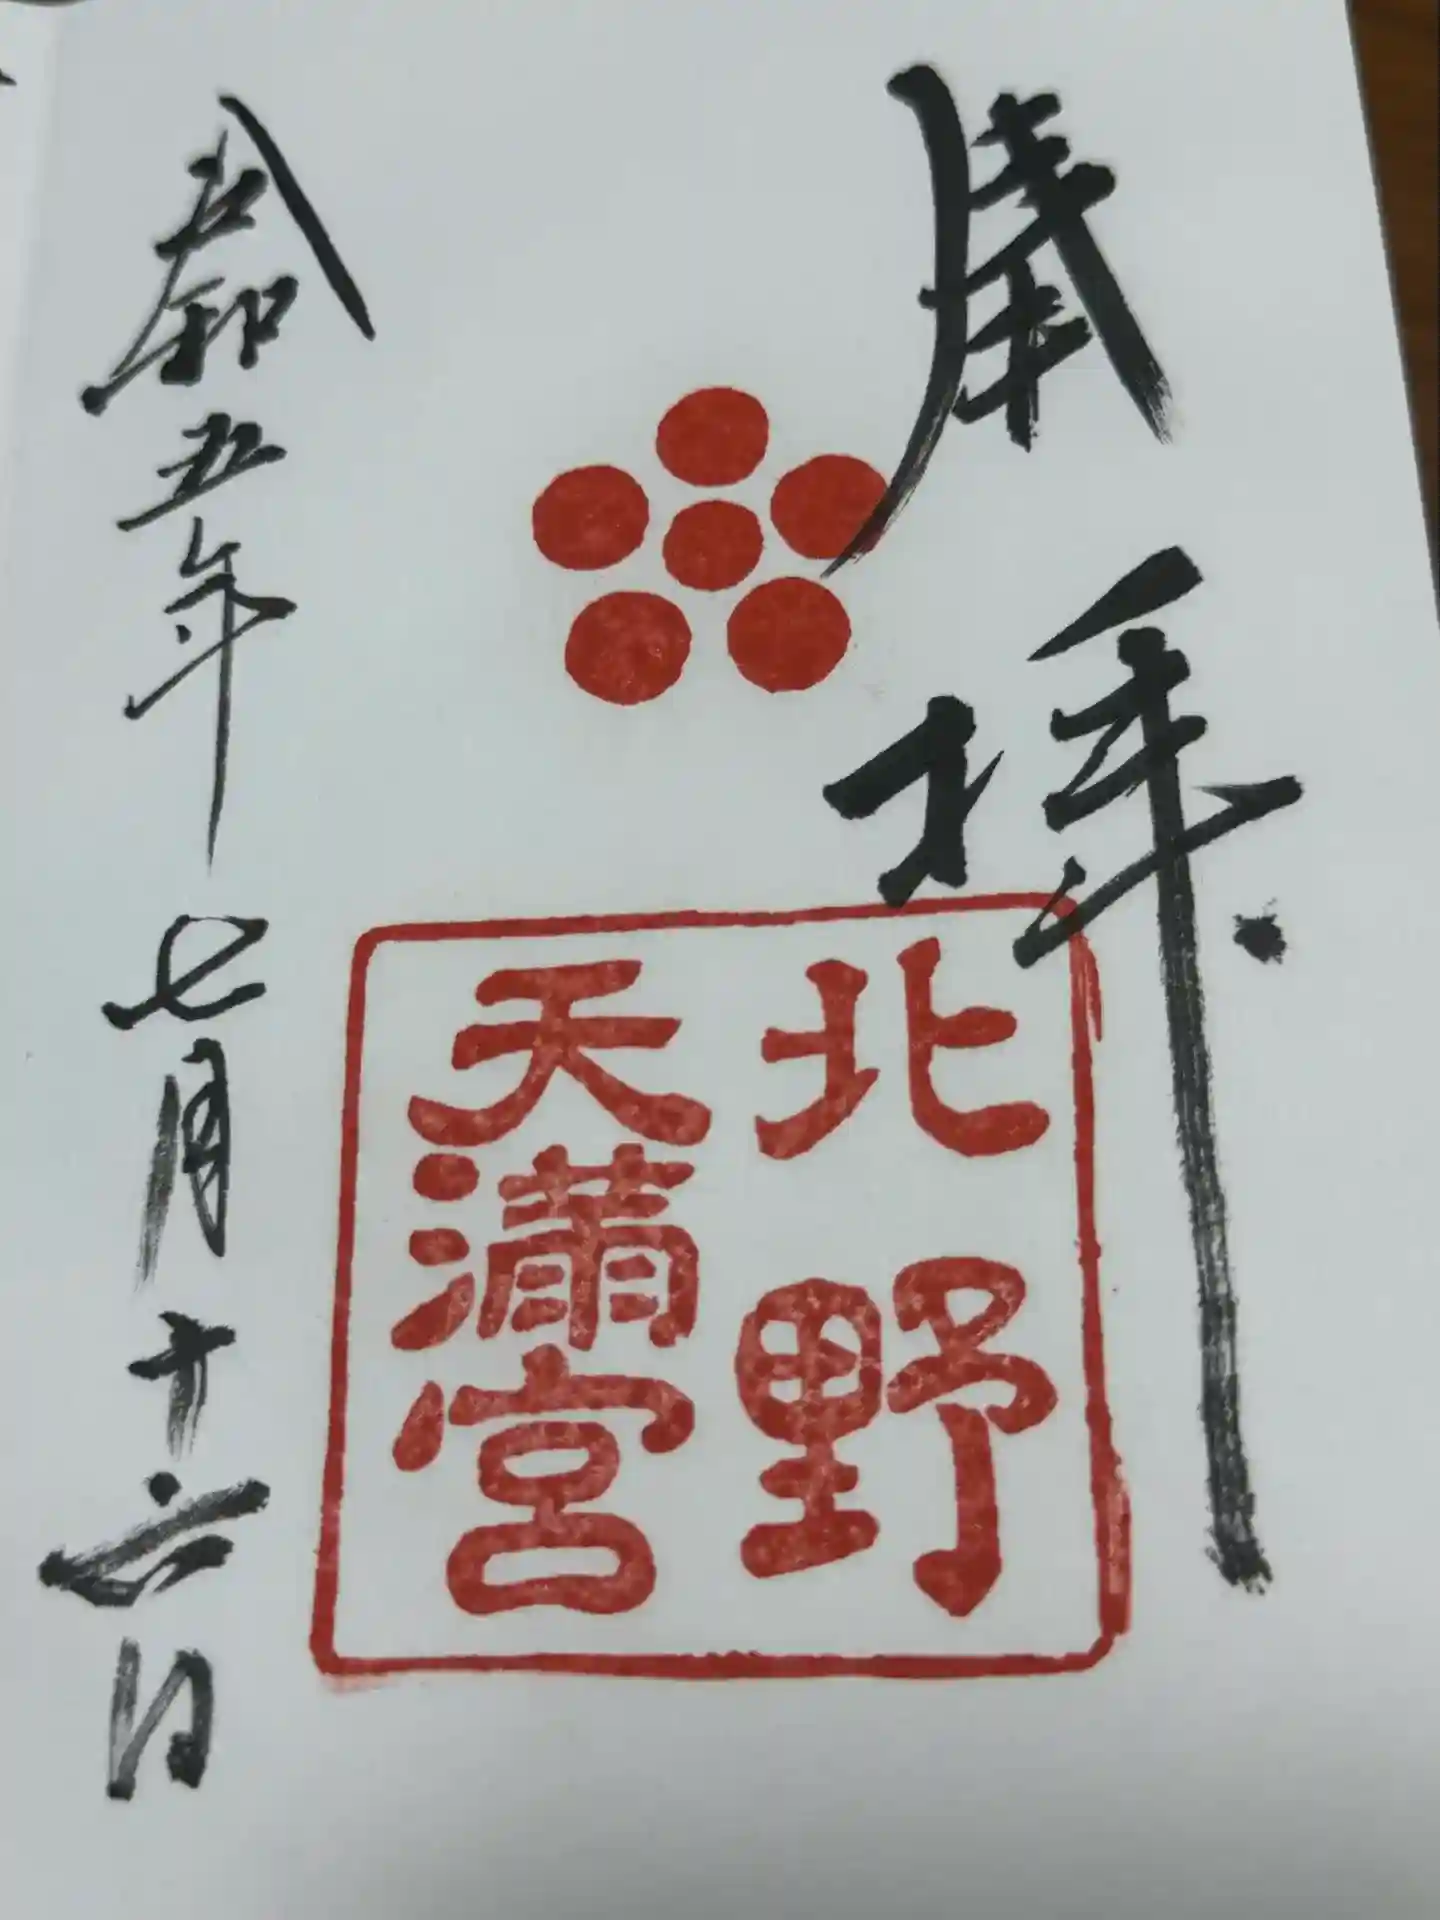 奉拝
北野
天満宮
令和五年七月十六日